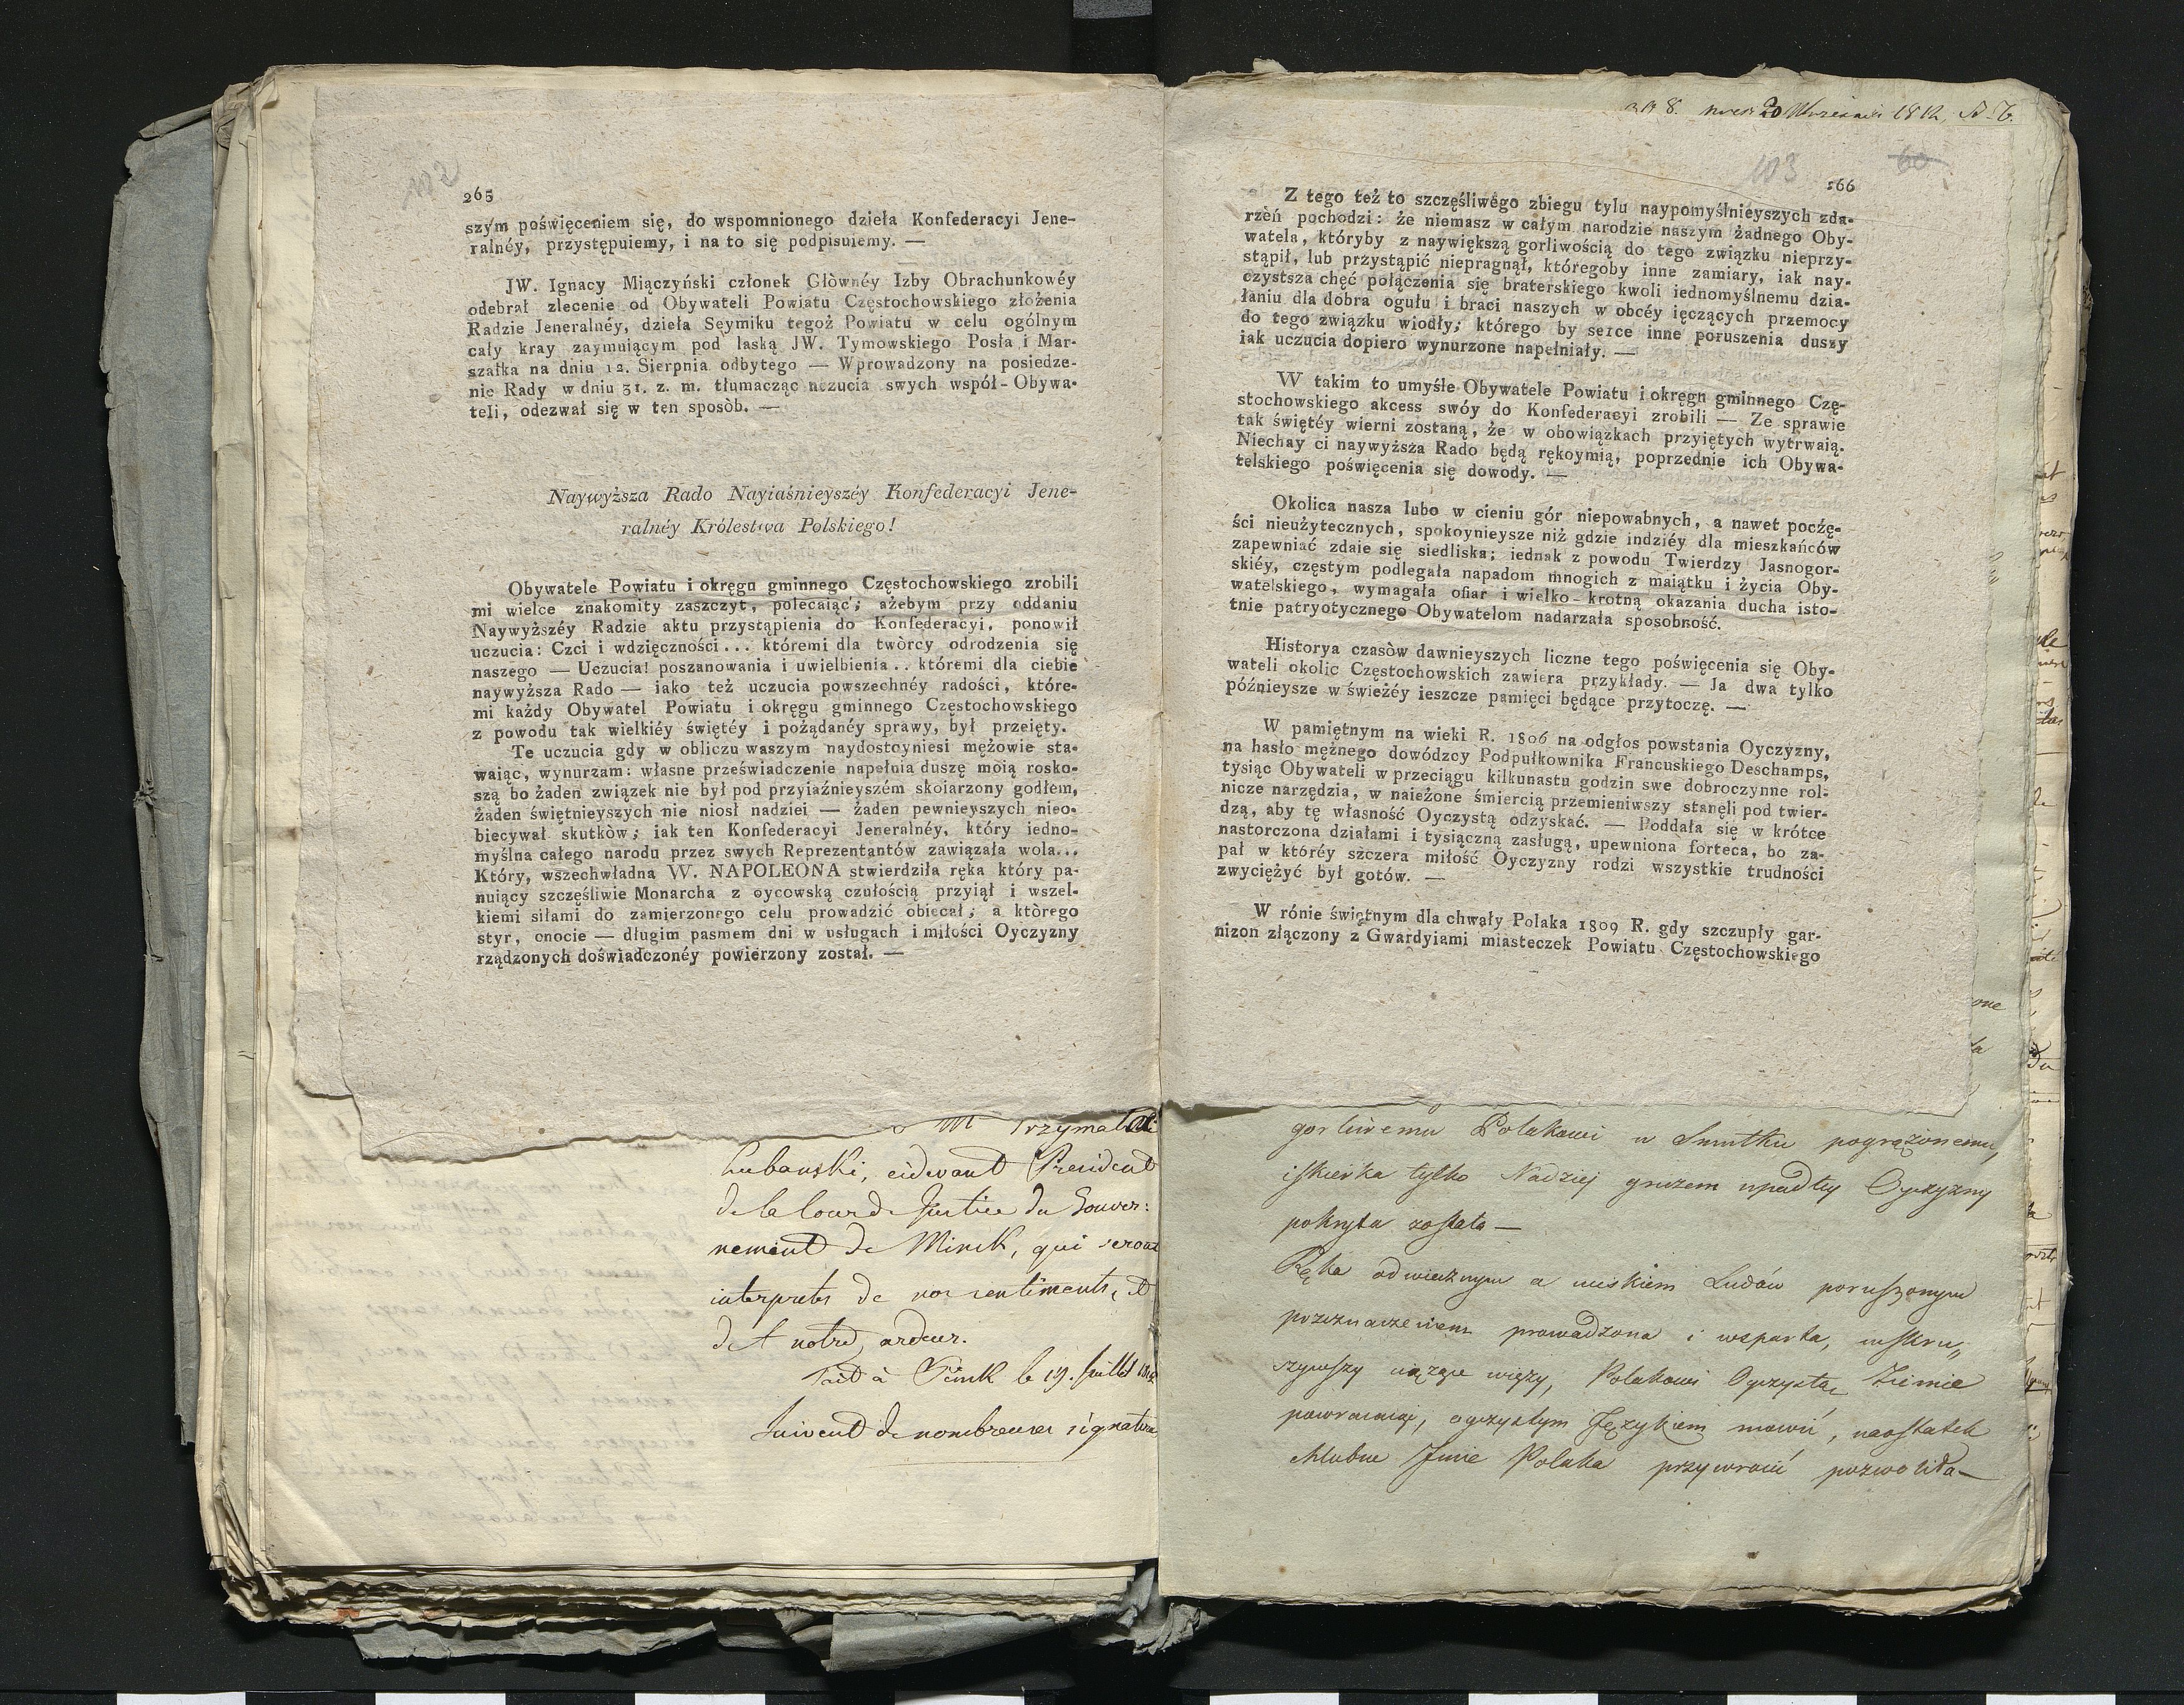 102
265
szym poświęceniem się, do wspomnionego dzieła Konfederacyi Jene-
ralnéy, przystępuiemy, i na to się podpisuiemy. —
JW. Ignacy Miączyński członek Głównéy Izby Obrachunkowéy
odebrał zlecenie od Obywateli Powiatu Częstochowskiego złożenia
Radzie Jeneralnéy, dzieła Seymiku tegoż Powiatu w celu ogólnym
cały kray zaymuiącym pod laską JW. Tymowskiego Posła i Mar-
szałka na dniu 12. Sierpnia odbytego — Wprowadzony na posiedze-
nie Rady w dniu 31. z. m. tłumacząc uczucia swych współ-Obywa-
teli, odezwał się w ten sposòb. —
Naywyższa Rado Nayiaśnieyszéy Konfederacyi Jene-
ralnéy Królestwa Polskiego!
Obywatele Powiatu i okręgu gminnego Częstochowskiego zrobili
mi wielce znakomity zaszczyt, polecaiąc; ażebym przy oddaniu
Naywyższéy Radzie aktu przystąpienia do Konfederacyi, ponowił
uczucia: Czci i wdzięczności... któremi dla twòrcy odrodzenia się
naszego — Uczucia! poszanowania i uwielbienia.. któremi dla ciebie
naywyższa Rado — iako też uczucia powszechnéy radości, które-
mi każdy Obywatel Powiatu i okręgu gminnego Częstochowskiego
z powodu tak wielkiéy świętéy i pożądanéy sprawy, był przeięty.
Te uczucia gdy w obliczu waszym naydostoyniesi mężowie sta-
waiąc, wynurzam: własne przeświadczenie napełnia duszę moią rosko-
szą bo żaden związek nie był pod przyiaźnieyszém skoiarzony godłem,
żaden świętnieyszych nie niosł nadziei — żaden pewnieyszych nieo-
biecywał skutkòw; iak ten Konfederacyi Jeneralnéy, który iedno-
myślna całego narodu przez swych Reprezentantów zawiązała wola...
Który, wszechwładna W. NAPOLEONA stwierdziła ręka który pa-
nuiący szczęśliwie Monarcha z oycowską czułością przyiął i wszel-
kiemi siłami do zamierzonego celu prowadzić obiecał; a ktòrego
styr, cnocie — długim pasmem dni w usługach i miłości Oyczyzny
rządzonych doświadczonéy powierzony został. —
Lubanski, cidevant President
de la Cour de Justice du Gouver:
nement de Minsk, qui seront
interpretes de nos sentiments, et
de notre ardeur.
Fait à Pinsk le 19. Juillet 1812
Suivent de nombreuses signatures
№ 8. 20 Września 1812,
103
60
266
Z tego też to szczęśliwégo zbiegu tylu naypomyślnieyszych zda-
rzèń pochodzi: że niemasz w całym narodzie naszym żadnego Oby-
watela, któryby z naywiększą gorliwością do tego związku nieprzy-
stąpił, lub przystąpić niepragnął, któregoby inne zamiary, iak nay-
czystsza chęć połączenia się braterskiego kwoli iednomyślnemu dzia-
łaniu dla dobra ogułu i braci naszych w obcéy ięczących przemocy
do tego związku wiodły; którego by serce inne poruszenia duszy
iak uczucia dopiero wynurzone napełniały. —
W takim to umyśle Obywatele Powiatu i okręgu gminnego Czę-
stochowskiego akcess swóy do Konfederacyi zrobili — Ze sprawie
tak świętéy wierni zostaną, że w obowiązkach przyiętych wytrwaią.
Niechay ci naywyższa Rado będą rękoymią, poprzednie ich Obywa-
telskiego poświęcenia się dowody. —
Okolica nasza lubo w cieniu gór niepowabnych, a nawet poczę-
ści nieużytecznych, spokoynieysze niż gdzie indziéy dla mieszkańców
zapewniać zdaie się siedliska; iednak z powodu Twierdzy Jasnogor-
skiéy, częstym podlegała napadom mnogich z maiątku i życia Oby-
watelskiego, wymagała ofiar i wielko-krotną okazania ducha isto-
tnie patryotycznego Obywatelom nadarzała sposobność.
Historya czasòw dawnieyszych liczne tego poświęcenia się Oby-
wateli okolic Częstochowskich zawiera przykłady. — Ja dwa tylko
późnieysze w świeżéy ieszcze pamięci będące przytoczę. —
W pamiętnym na wieki R. 1806 na odgłos powstania Oyczyzny,
na hasło mężnego dowódzcy Podpułkownika Francuskiego Deschamps,
tysiąc Obywateli w przeciągu kilkunastu godzin swe dobroczynne rol-
nicze narzędzia, w naieżone śmiercią przemieniwszy stanęli pod twier-
dzą, aby tę własność Oyczystą odzyskać. — Poddała się w krótce
nastorczona działami i tysiączną zasługą, upewniona forteca, bo za-
pał w któréy szczera miłość Oyczyzny rodzi wszystkie trudności
zwyciężyć był gotów. —
W rónie świętnym dla chwały Polaka 1809 R. gdy szczupły gar-
nizon złączony z Gwardyiami miasteczek Powiatu Częstochowskiego
gorliwemu Polakowi w Smutku pogrążonemu,
iskierka tylko Nadziej gruzem upadłey Oyczyzny
pokryta została —
Ręka odwiecznym a uciskiem Ludów poruszonym
przeznaczeniem prowadzona i wsparta, wskru„
szywszy więzy, Polakowi Oyczystą Ziemie
powracaiąc, oyczystym Językiem mowić, naostatek
chlubne Jmie Polaka przywrócić pozwoliła —